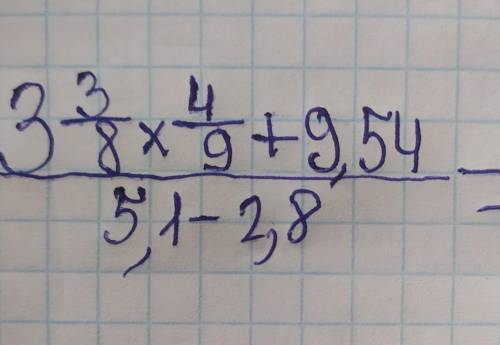 3 3/8 × 4/9 + 9,54
5,1 - 2,8 =